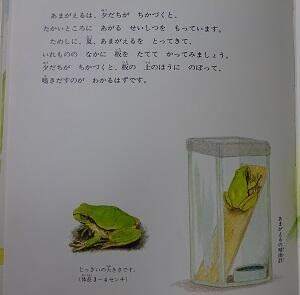 あまがえるは、夕だちが ちかづくと、
たかいところに あがる せいしつを もっています。
ためしに、夏、あまがえるを とってきて、
いれものの なかに 板を たてて かってみましょう。
夕だちが ちかづくと、板の 上のほうに のぼって、
鳴きだすのが わかるはずです。
じっさいの大きさです。
(体長3〜4センチ)
あまがえるの晴雨計